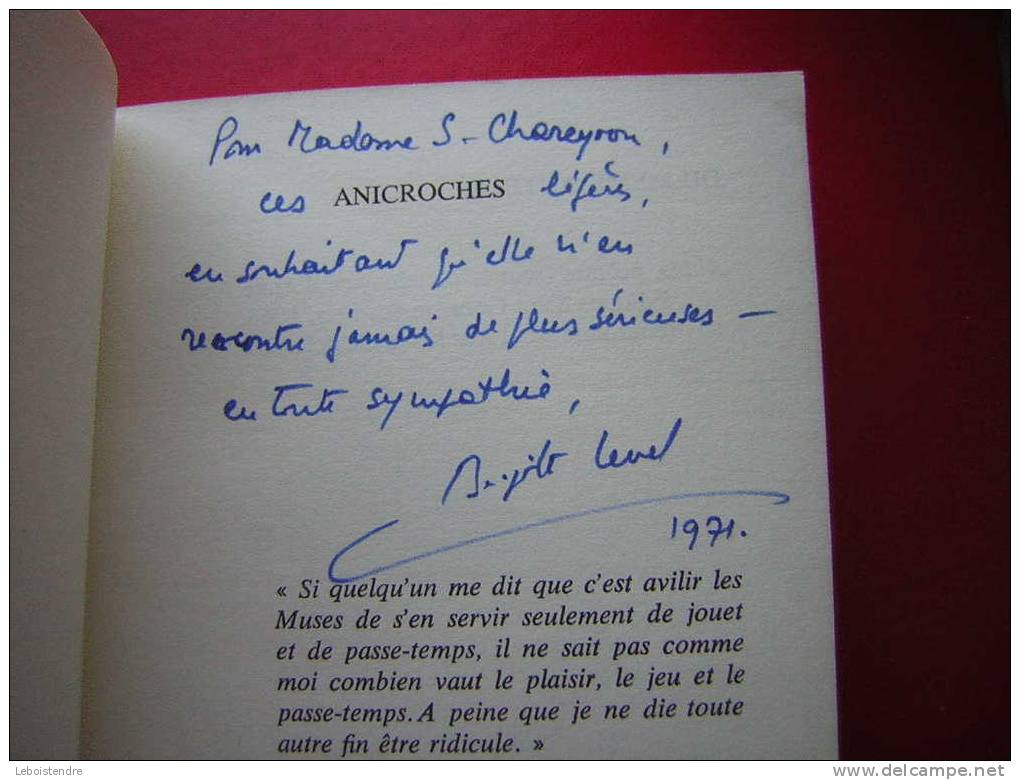 Pour Madame S. Chareyron,
ces ANICROCHES légères,
en souhaitant qu'elle n'en
rencontre jamais de plus sérieuses —
en toute sympathie,
Brigitte Level
1971.
« Si quelqu'un me dit que c'est avilir les
Muses de s'en servir seulement de jouet
et de passe-temps, il ne sait pas comme
moi combien vaut le plaisir, le jeu et le
passe-temps. A peine que je ne die toute
autre fin être ridicule. »
Leboistendre
www.delcampe.net